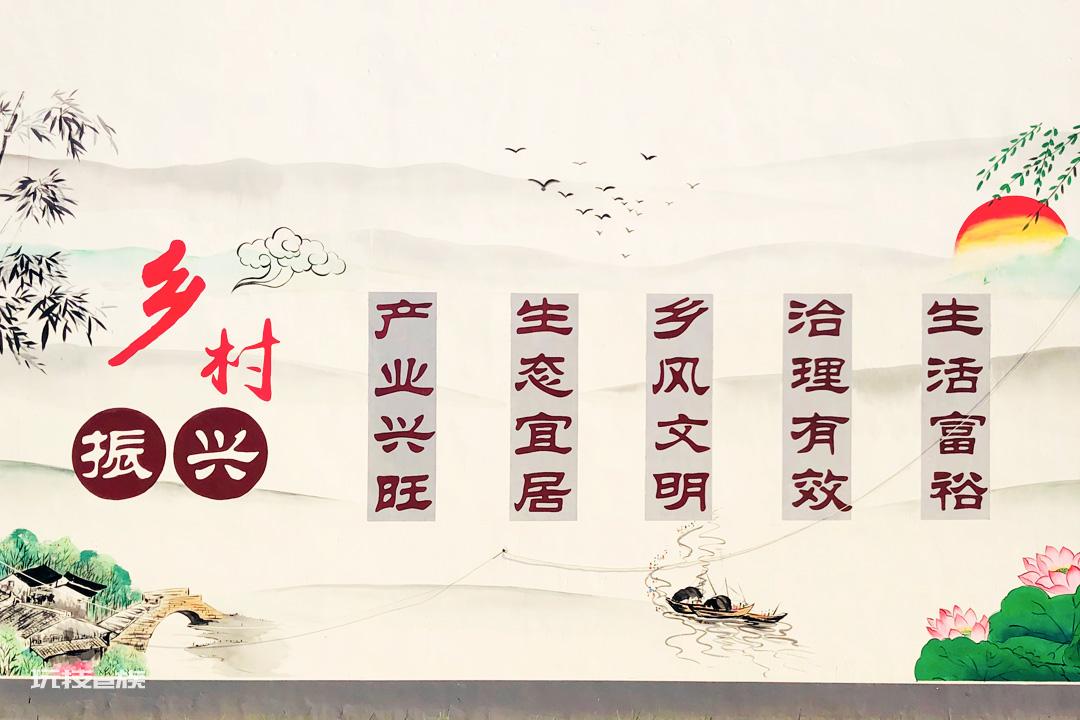 乡村
振兴
产业兴旺
生态宜居
乡风文明
治理有效
生活富裕